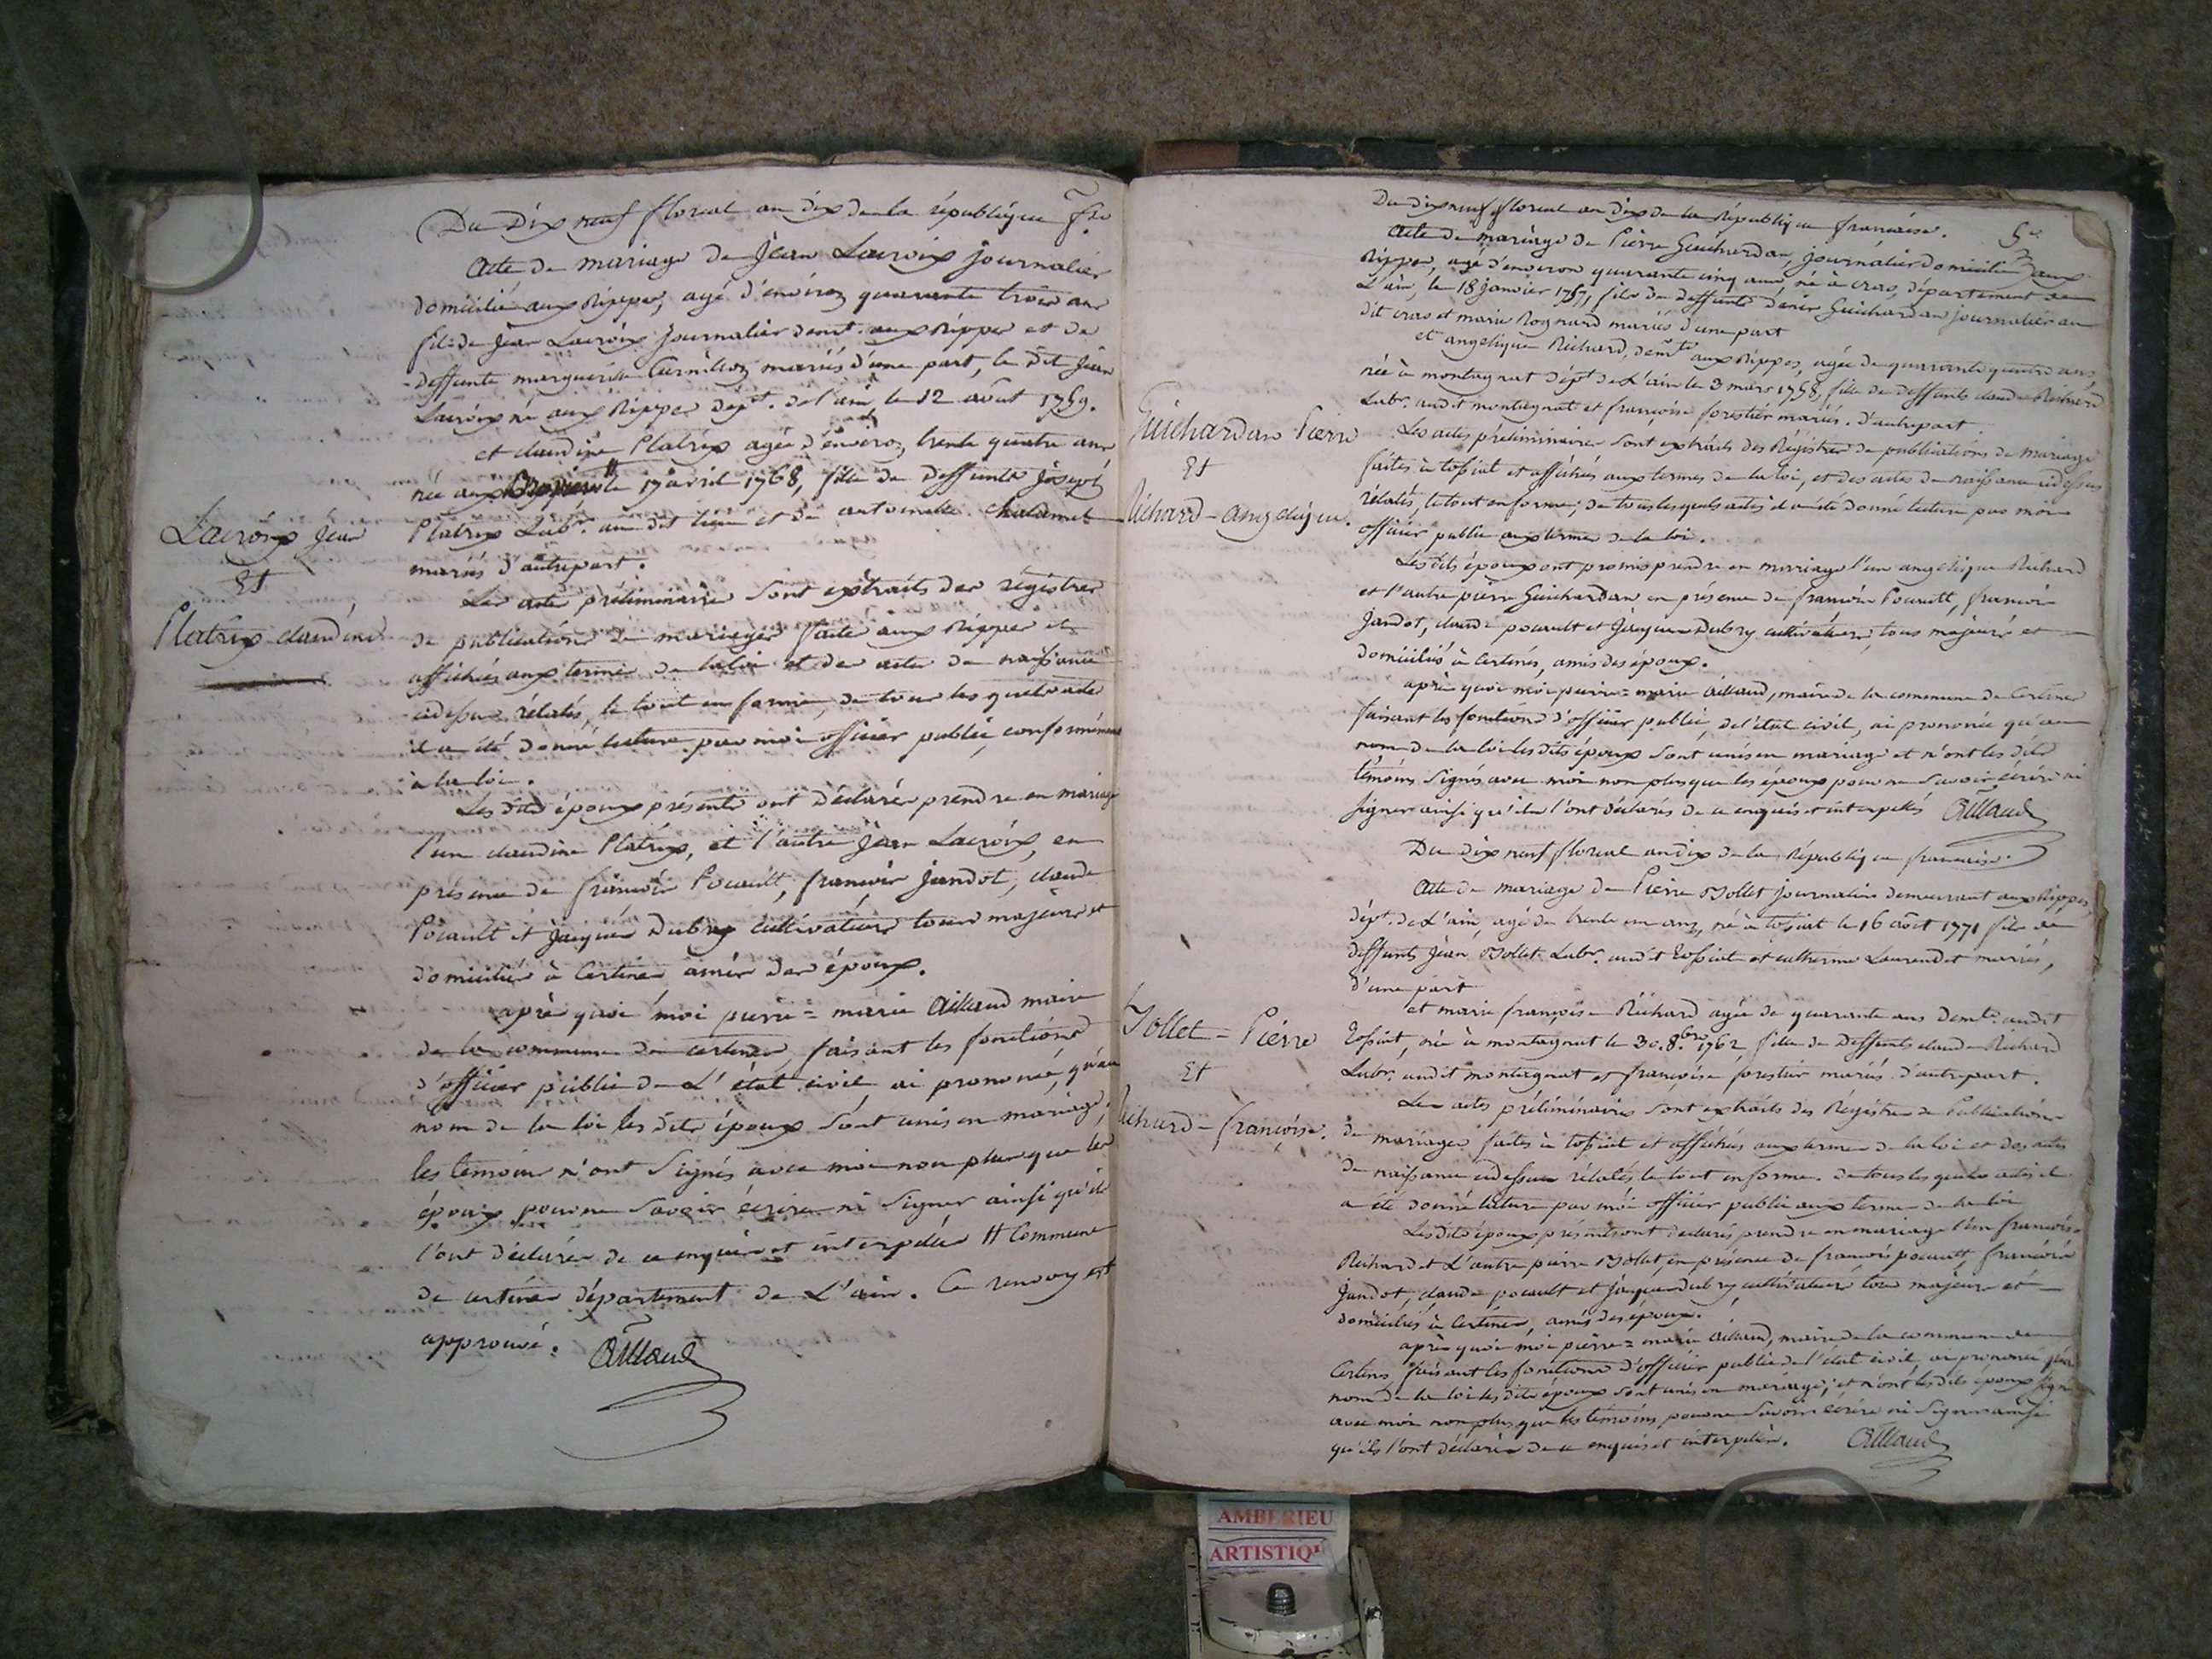 Du Dix neuf floreal an dix de la république fse
Acte de mariage de Jean Lacroix journalier
domicilié aux Rippes, agé d'environ quarante trois ans
fils de Jean Lacroix journalier demt. aux Rippes et de
deffunte marguerite mariés d'une part, le dit Jean
Lacroix né aux Rippes dépt. de l'ain le 12 août 1759.
et claudine Platrix agée d'environ trente quatre ans
née aux le 17 avril 1768, fille de deffunts joseph
Platrix Labr. au dit lieu et de antoinette chalamel
mariés d'autre part.
Lacroix Jean
Et
Platrix claudine
Les actes préliminaires sont extraits des régistres
de publications de mariages faites aux Rippes et
affichés aux termes de la loi et des actes de naissance
cidessus rélatés, le tout en forme, de tous les quels actes
il a été donné lecture par moi officier public, conformément
à la loi.
Les dits époux présents ont déclarés prendre en mariage
l'un claudine Platrix, et l'autre Jean Lacroix, en
présence de françois Pocault, françois Jandot, claude
Pocault et Jacques Dubry cultivateurs tous majeurs et
domiciliés à Certines amis des époux.
après quoi moi pierre=marie Aillaud maire
de la commune de certines, faisant les fonctions
d'officier public de L'état civil, ai prononcé, qu'au
nom de la loi les dits époux sont unis en mariage,
les témoins n'ont signés avec moi non plus que les
époux pour ne savoir écrire ni signer ainsi qu'ils
l'ont déclarés de ce enquis et interpellés # Commune
de certines département de L'ain. Ce renvoy est
approuvé. Aillaud
Du dix neuf floreal an dix de la République française.
5e
Acte de mariage de Pierre Guichardan, journalier domicilié aux
Rippes, agé d'environ quarante cinq ans, né à cras, département de
L'ain, le 18 janvier 1757, fils de deffunts denis Guichardan journalier au
dit cras et marie Rognard mariés d'une part
et angelique Richard, demte aux Rippes, agée de quarante quatre ans,
née à montagnat dépt. de L'ain le 3 mars 1758, fille de deffunts claude Richard
Labr. audit montagnat et françoise forestier mariés. d'autre part.
Guichardan Pierre
Et
Richard=angelique.
Les actes préliminaires sont extraits des Régistres de publications de mariage
faites à tossiat et affichés aux termes de la loi, et des actes de naissance cidessus
rélatés, le tout en forme; de tous lesquels actes il a été donné lecture par moi
officier public aux termes de la loi.
Les dits époux ont promis prendre en mariage l'un angelique Richard
et l'autre pierre Guichardan en présence de françois Pocault, françois
Jandot, claude pocault et Jacques Dubry cultivateurs, tous majeurs et
domiciliés à Certines, amis des époux.
après quoi moi pierre=marie Aillaud, maire de la commune de Certines
faisant les fonctions d'officier public, de l'état civil, ai prononcé qu'au
nom de la loi les dits époux sont unis en mariage et n'ont les dits
témoins signés avec moi non plus que les époux pour ne savoir écrire ni
signer ainsi qu'ils l'ont déclarés de ce enquis et interpellés Aillaud
Du dix neuf floreal an dix de la République française.
Acte de mariage de Pierre Jollet journalier demeurant aux Rippes,
dépt. de L'ain, agé de trente un ans, né à tossiat le 16 août 1771 fils de
deffunts Jean Jollet Labr. audit tossiat et catherine Laurendet mariés,
d'une part
et marie françoise Richard agée de quarante ans demte audit
tossiat, née à montagnat le 30.8bre 1762 fille de deffunts claude Richard
Labr. audit montagnat et françoise forestier mariés d'autre part.
Jollet=Pierre
Et
Richard=françoise.
Les actes préliminaires sont extraits des Régistres de Publications
de mariages faites à tossiat et affichés aux termes de la loi et des actes
de naissance cidessus rélatés le tout en forme. de tous les quels actes il
a été donné lecture par moi officier public aux termes de la loi
Les dits époux présents ont declarés prendre en mariage l'un françoise
Richard et L'autre pierre Jollet, en présence de françois pocault, françois
Jandot, claude pocault et jacques dubry cultivateurs tous majeurs et
domiciliés à Certines, amis des époux.
après quoi moi pierre=marie Aillaud, maire de la commune de
Certines faisant les fonctions d'officier public de l'état civil, ai prononcé qu'au
nom de la loi les dits époux sont unis en mariage; et n'ont les dits époux signé
avec moi non plus que les témoins pour ne savoir écrire ni signer ainsi
qu'ils l'ont déclarés de ce enquis et interpellés. Aillaud
AMBERIEU
ARTISTIQ